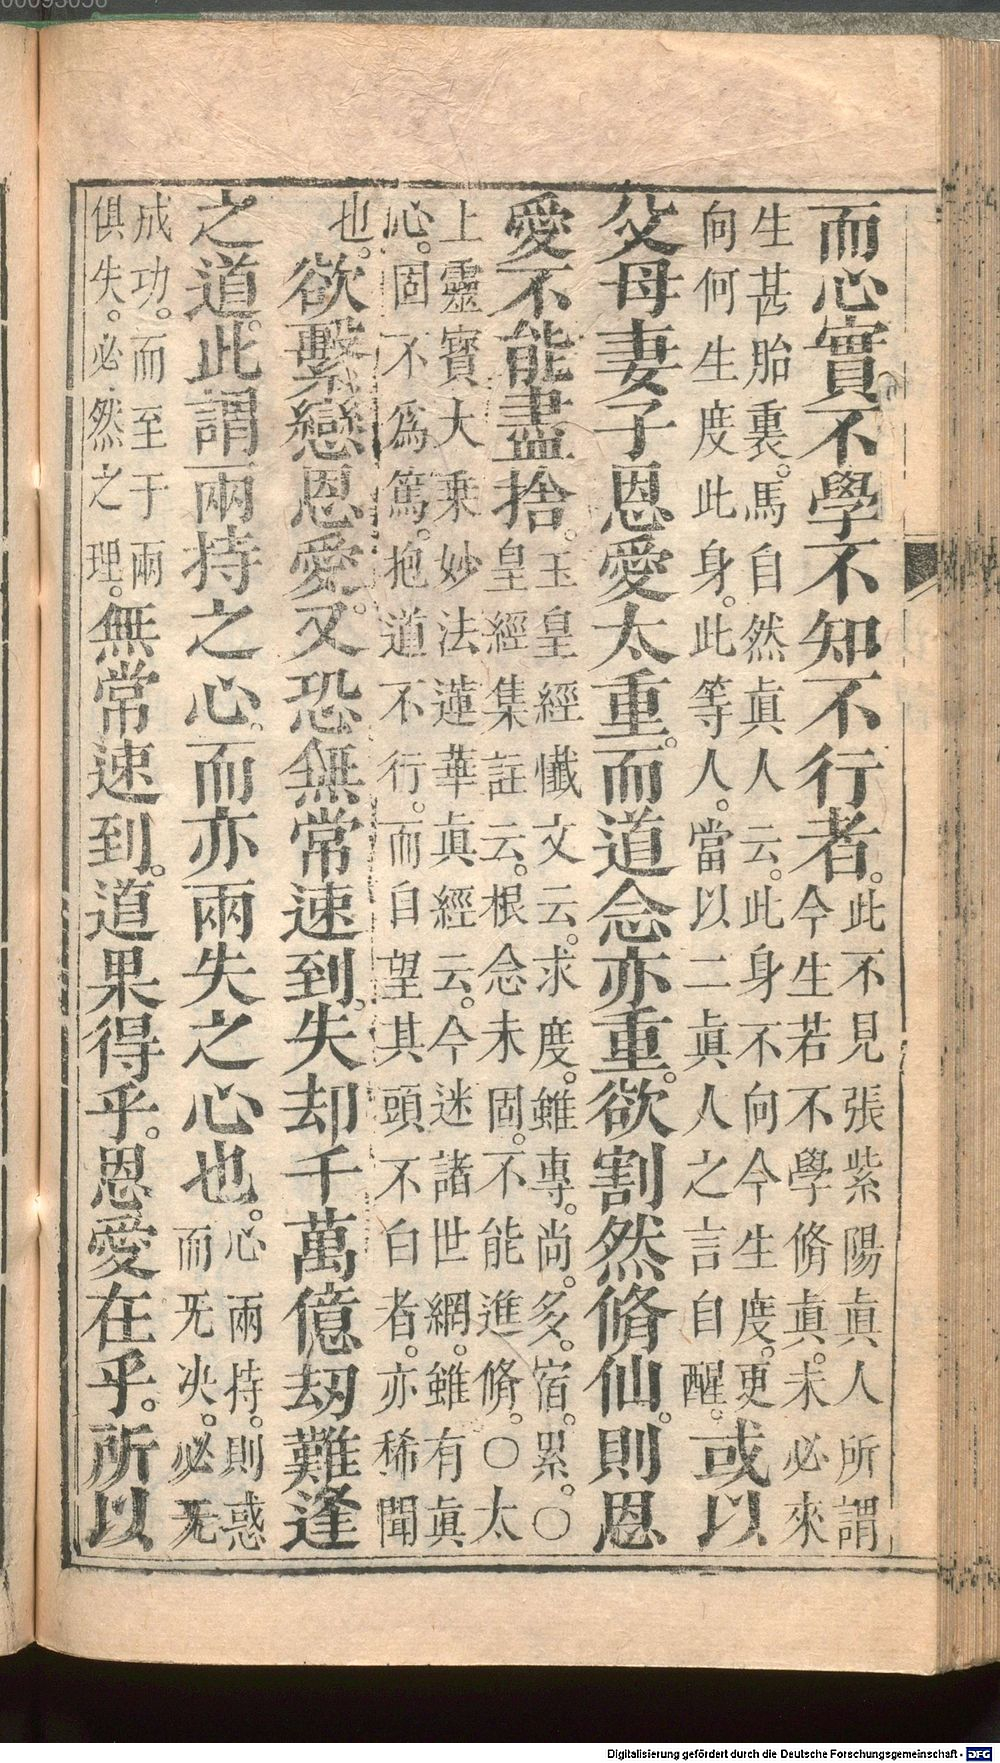 而心實不學不知不行者。此不見張紫陽眞人所謂
今生若不學脩眞。未必來
生甚胎裏。馬自然眞人云。此身不向今生度。更
向何生度此身。此等人。當以二眞人之言自醒。或以
父母妻子恩愛太重。而道念亦重。欲割然脩仙。則恩
愛不能盡捨。玉皇經懺文云。求度。雖專。尚。多。宿。累。○
皇經集註云。根念未固。不能進脩。○太
上靈寳大乗妙法蓮華眞經云。今迷諸世網。雖有眞
心。固不爲篤。抱道不行。而自望其頭不白者。亦稀聞
也。欲繫戀恩愛。又恐無常速到。失却千萬億刼難逢
之道。此謂兩持之心。而亦兩失之心也。心兩持。則惑
而旡决。必旡
成功。而至于兩
俱失。必然之理。無常速到。道果得乎。恩愛在乎。所以
Digitalisierung gefördert durch die Deutsche Forschungsgemeinschaft - DFG